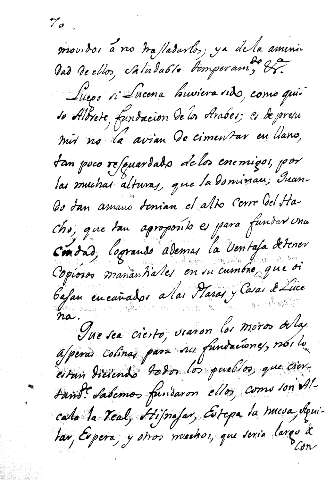 70
movidos à no trasladarlos; ya de la ameni-
dad de ellos, saludable temperamto, &a.
Luego si Lucena huviera sido, como qui-
so Alderete, fundacion de los Arabes; es de presu
mir no la avian de cimentar en llano,
tan poco resguardado de los enemigos, por
las muchas alturas, que la dominan; Quan-
do tan à mano tenian el alto cerro del Ha-
cho, que tan aproposito es para fundar una
Ciudad, logrando ademas la ventaja de tener
copiosos manantiales en su cumbre, que oi
bajan encañados a las Plazas y Casas de Luce
na.
Que sea cierto, usaron los moros de las
asperas colinas para sus fundaciones, nos lo
están diciendo todos los pueblos, que cier-
tamte sabemos fundaron ellos, como son Al-
calà la real, Hisnajar, Estepa la nueva,
tar, Espera, y otros muchos, que seria largo de
Con